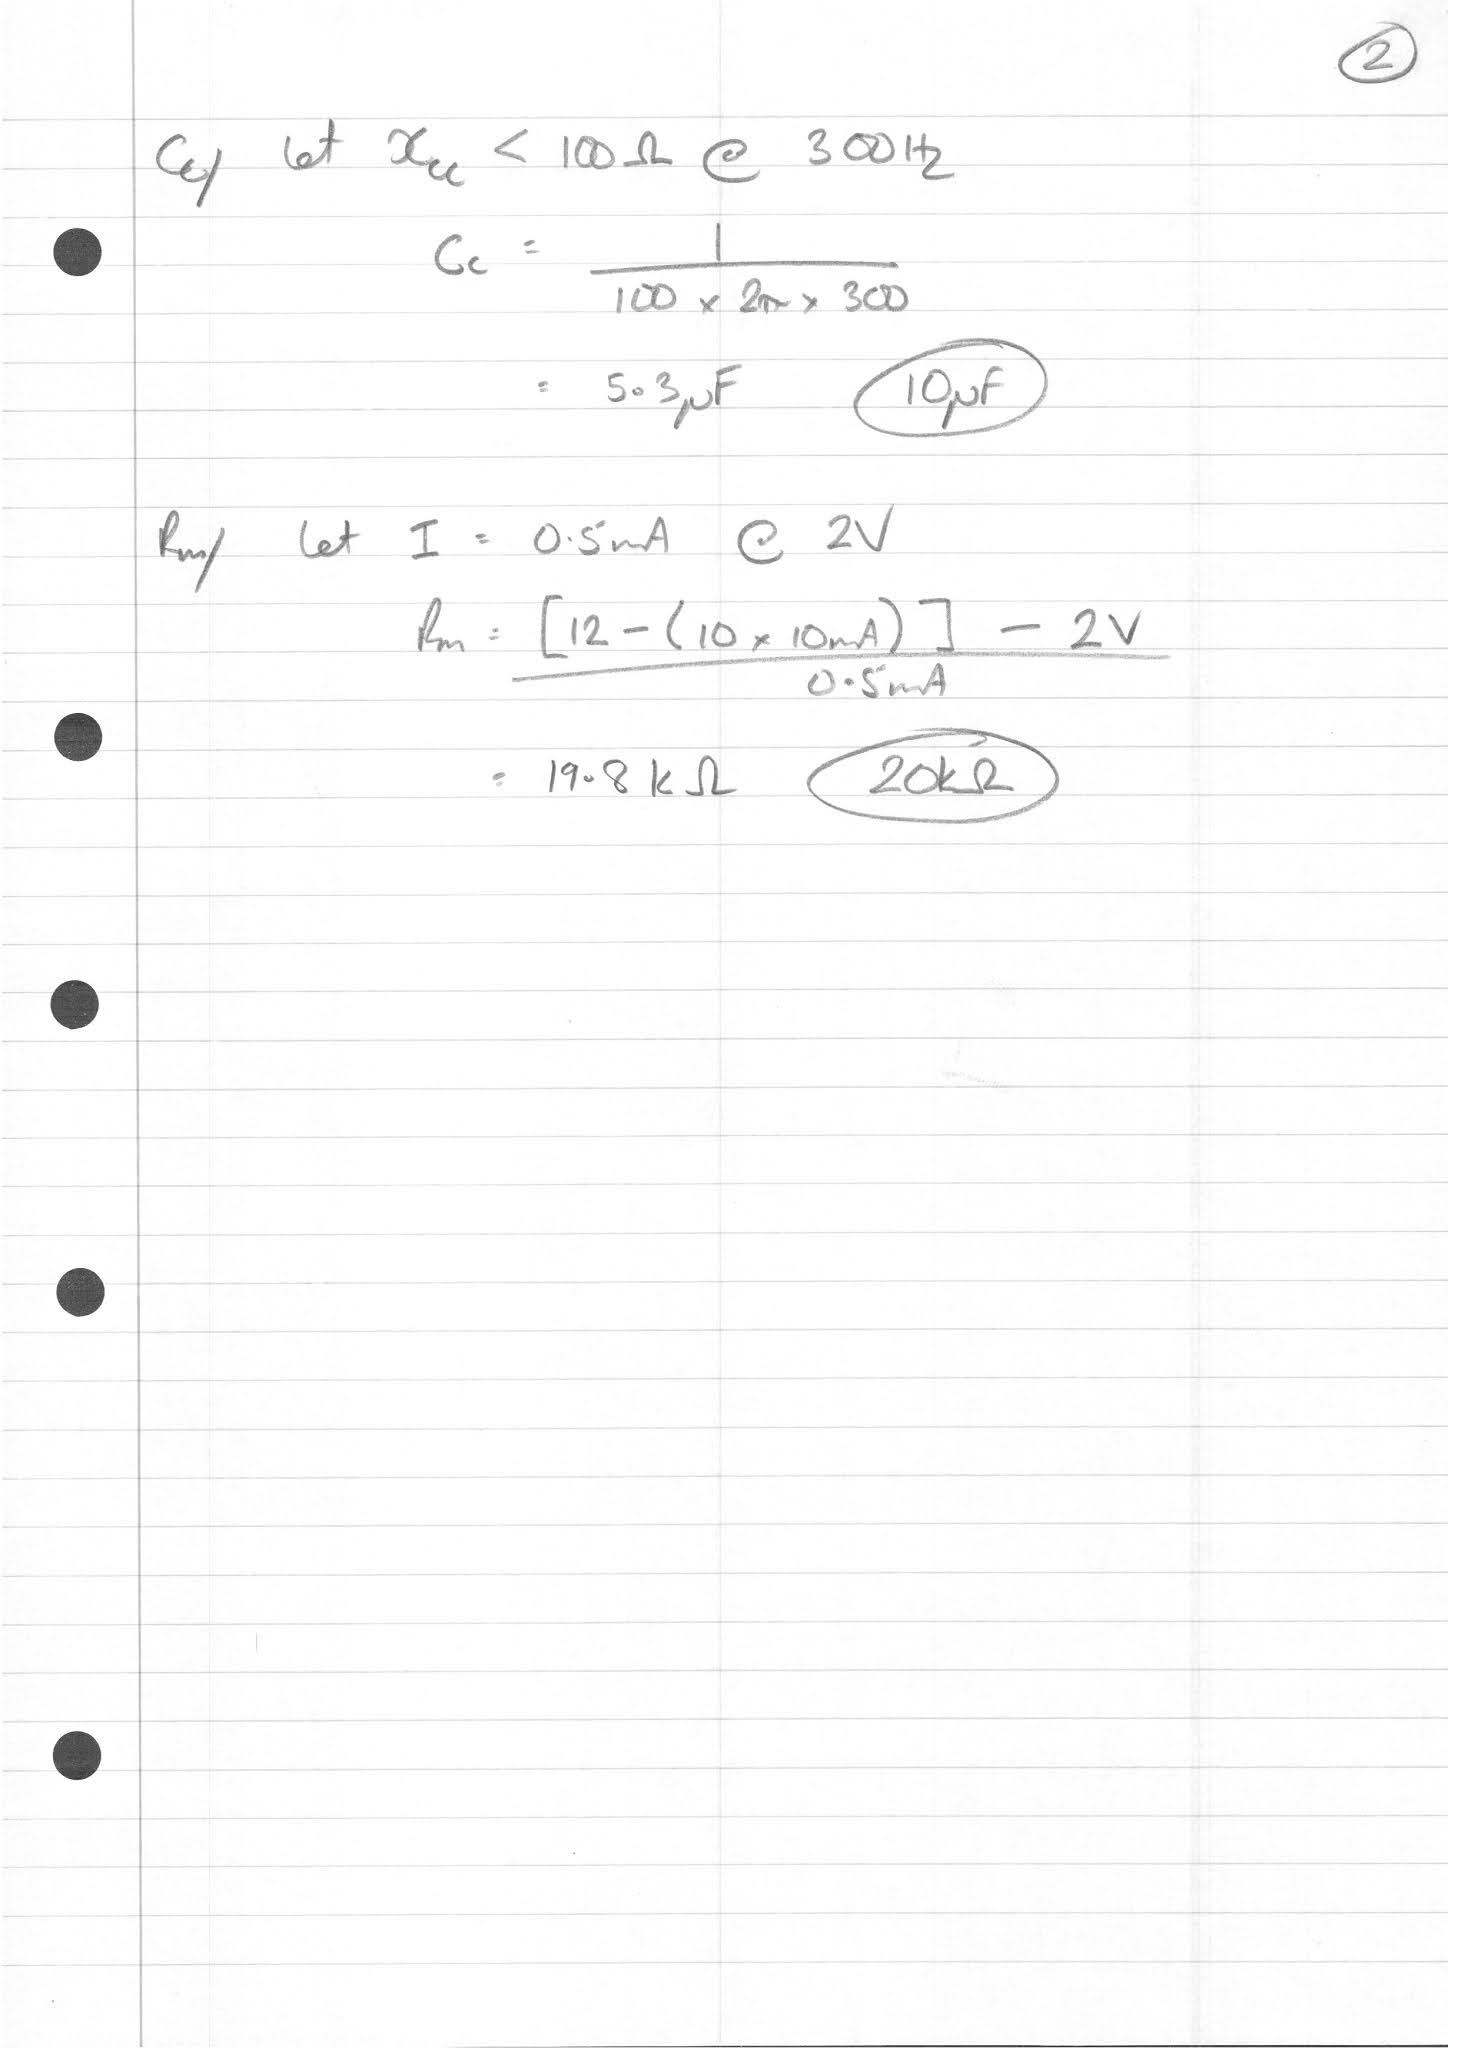 2
Cc/ let Xcc < 100Ω @ 300Hz
Cc = 1
100 × 2π × 300
= 5.3μF 10μF
Rm/ let I = 0.5mA @ 2V
Rm = [12 - (10 × 10mA)] - 2V
0.5mA
= 19.8kΩ 20kΩ